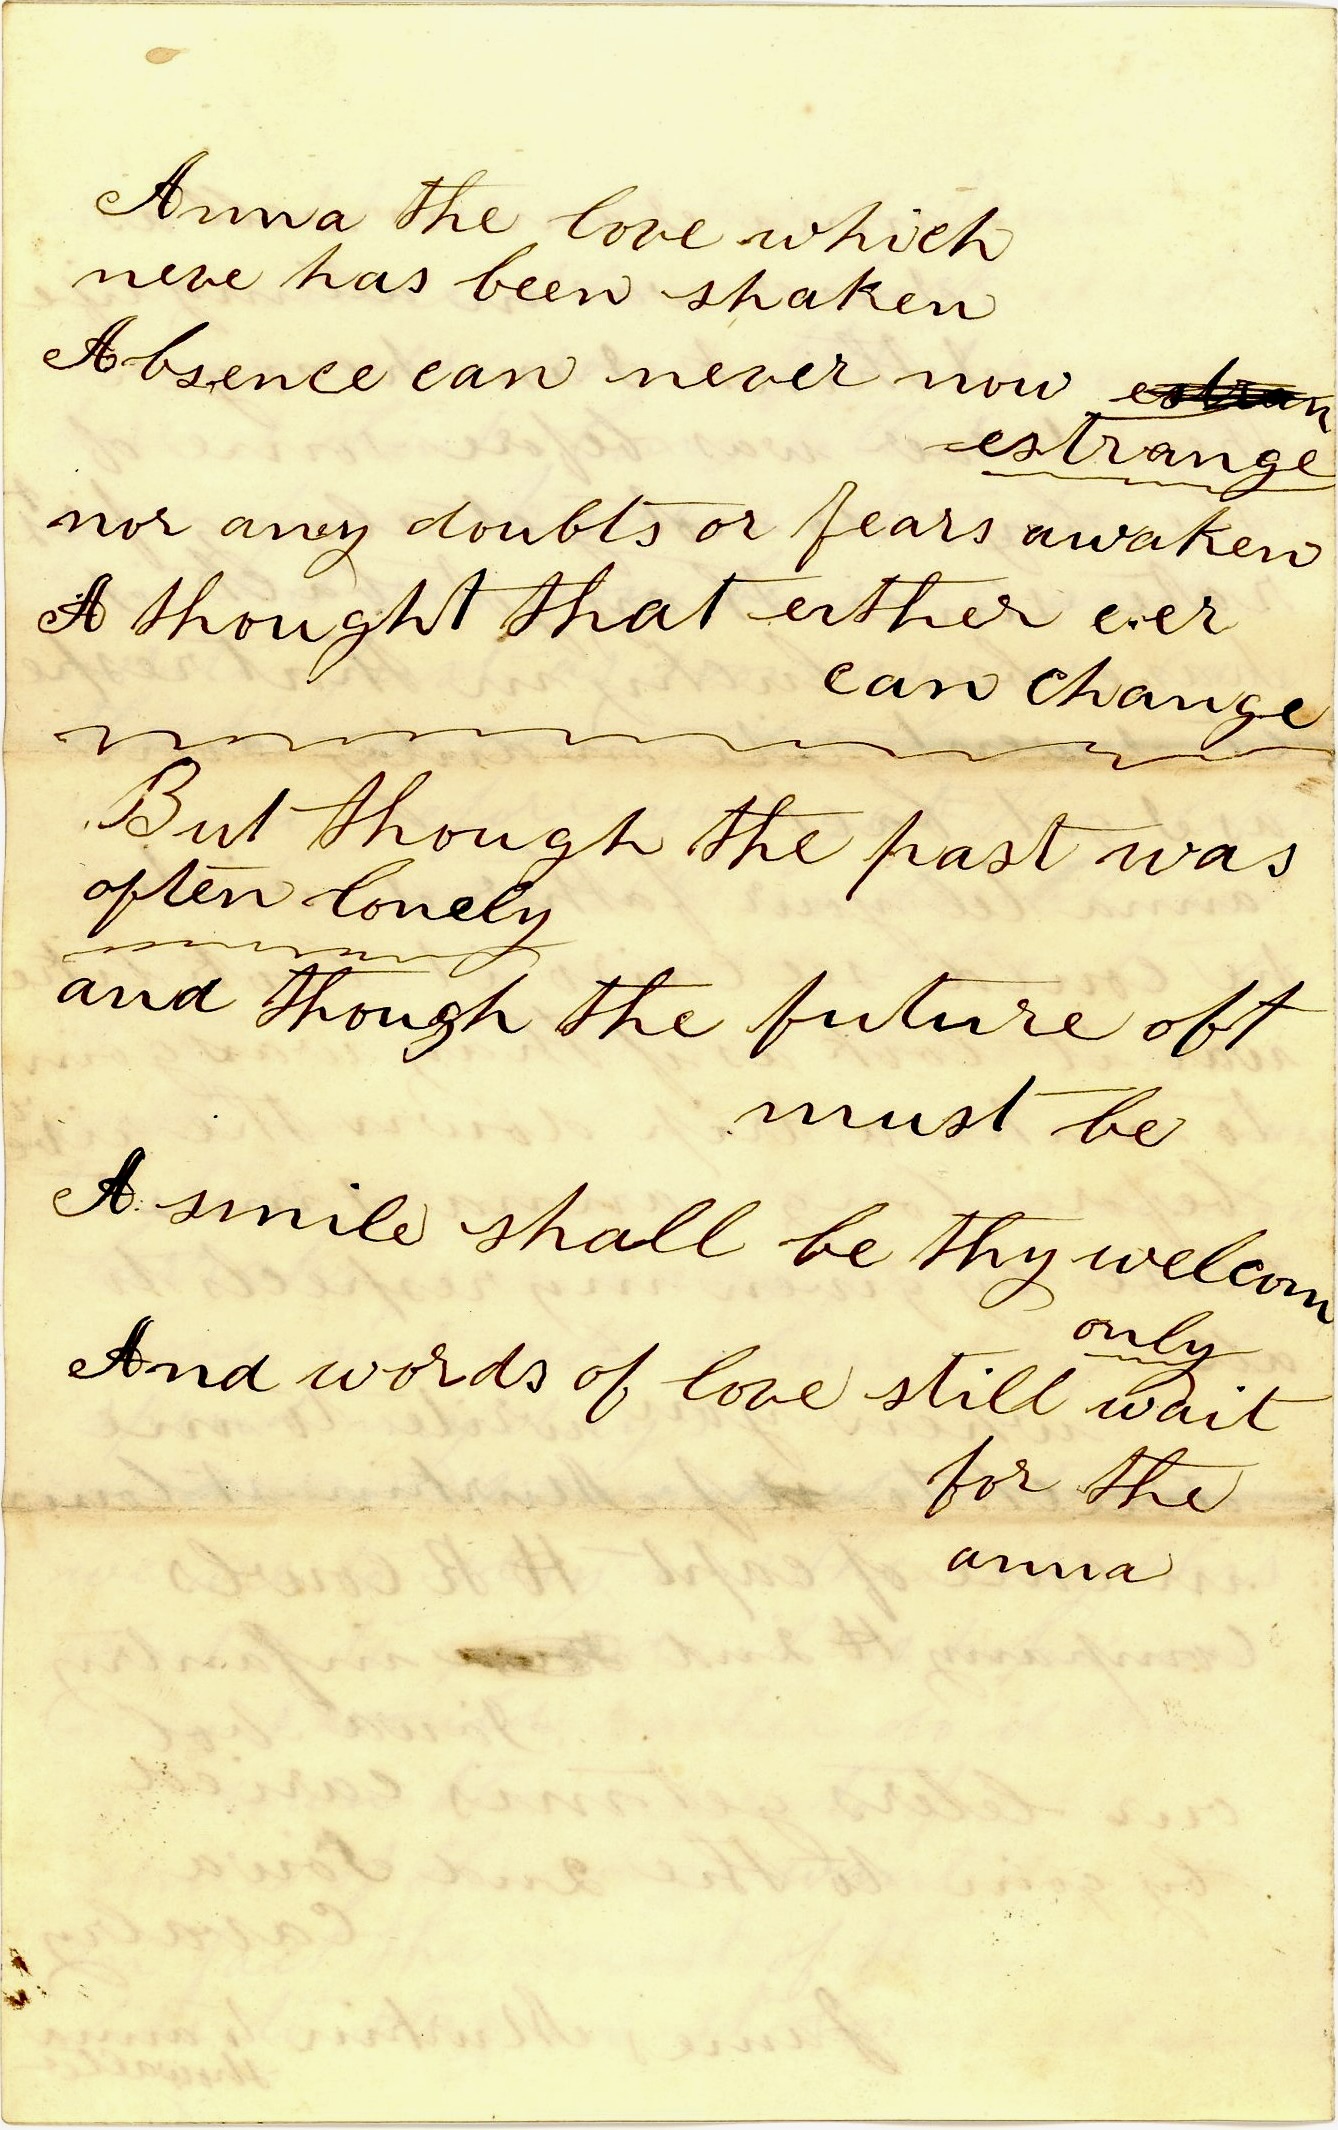 Anna the love which
neve has been shaken
Absence can never now estran
estrange
nor any doubts or fears awaken
A thought that either ever
can change
But though the past was
often lonely
and though the future oft
must be
A smile shall be thy welcom
only
And words of love still wait
for the
anna